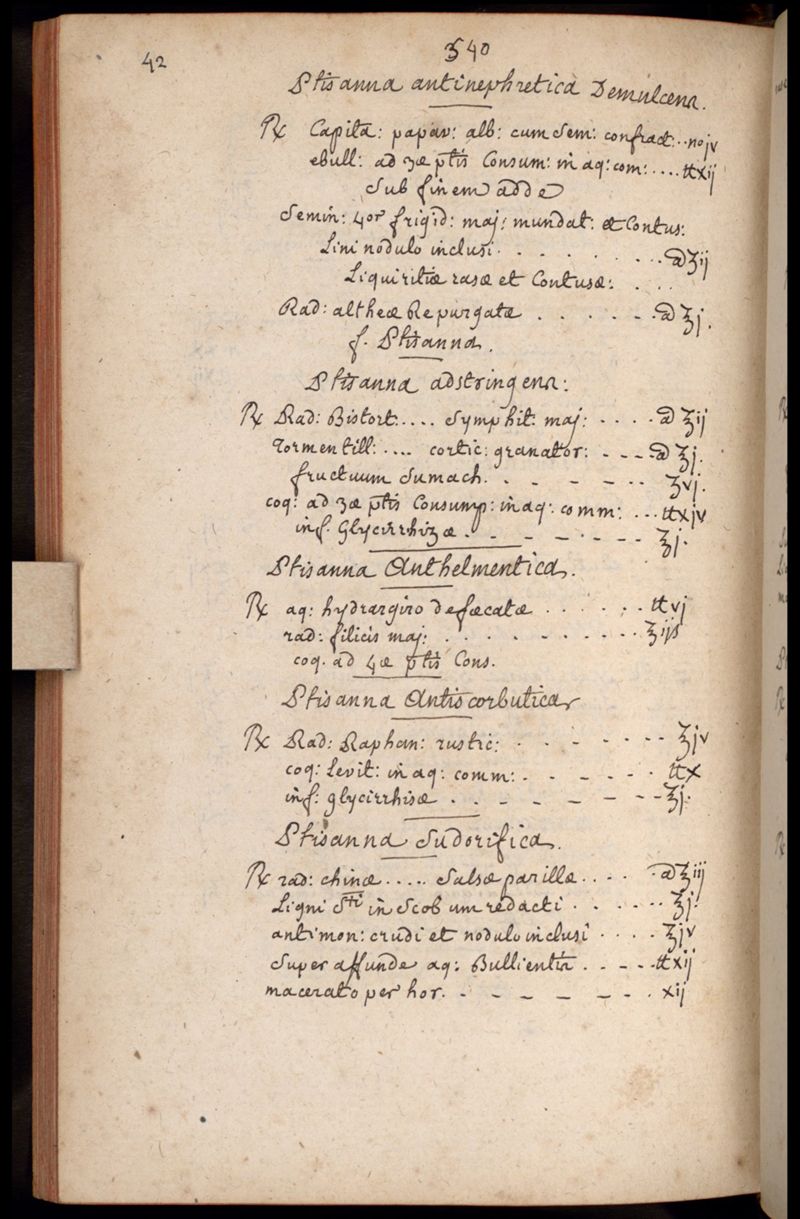 42
340
Ptisanna antinephretica Demulcens.
℞ Capita: papav: alb: cum sem: confract: .. no jv
ebull: ad 3æ ptis Consum: in aq: com: .... ℔xij
sub finem adde
Semin: 4or frigid: maj: mundat: et Contus:
Lini nodulo inclusi . . . . . . . . . a ʒij
Liquiritiæ rasæ et Contusæ: . . .
Rad: altheæ Repurgatæ . . . . . . a ʒj.
f. Ptisanna.
Ptisanna adstringens:
℞ Rad: Bistort: .... Symphit: maj: . . . . a ʒij
Tormentill: .... cortic: granator: - - - a ʒj.
fructuum Sumach. . . - - - .. ʒvj.
coq: ad 3æ ptis Consump: in aq: comm: ... ℔xjv
inf. Glycirrhizæ . . - - - . - - - ʒj.
Ptisanna Anthelmentica.
℞ aq: hydrargiro defæcatæ . . . . . . ℔vj
rad: filicis maj: . . . . - - - - . . . ʒijß
coq. ad 4æ ptis Cons.
Ptisanna Antiscorbutica
℞ Rad: Raphan: rustic: . . - - - - - ʒjv
coq: Levit: in aq: comm: . - - - - . ℔x
inf: glycirrhisæ . . - - - - - - ʒj.
Ptisanna Sudorifica.
℞ rad: chinæ ..... Salsæ parillæ . . . . a ʒiij
Ligni Sti in Scobum redacti . . . . .. ʒj.
antimon: crudi et nodulo inclusi . . . . ʒjv
super affunde aq: Bullientis . . - - - ℔xij
macerato per hor. - - - - - - . xij